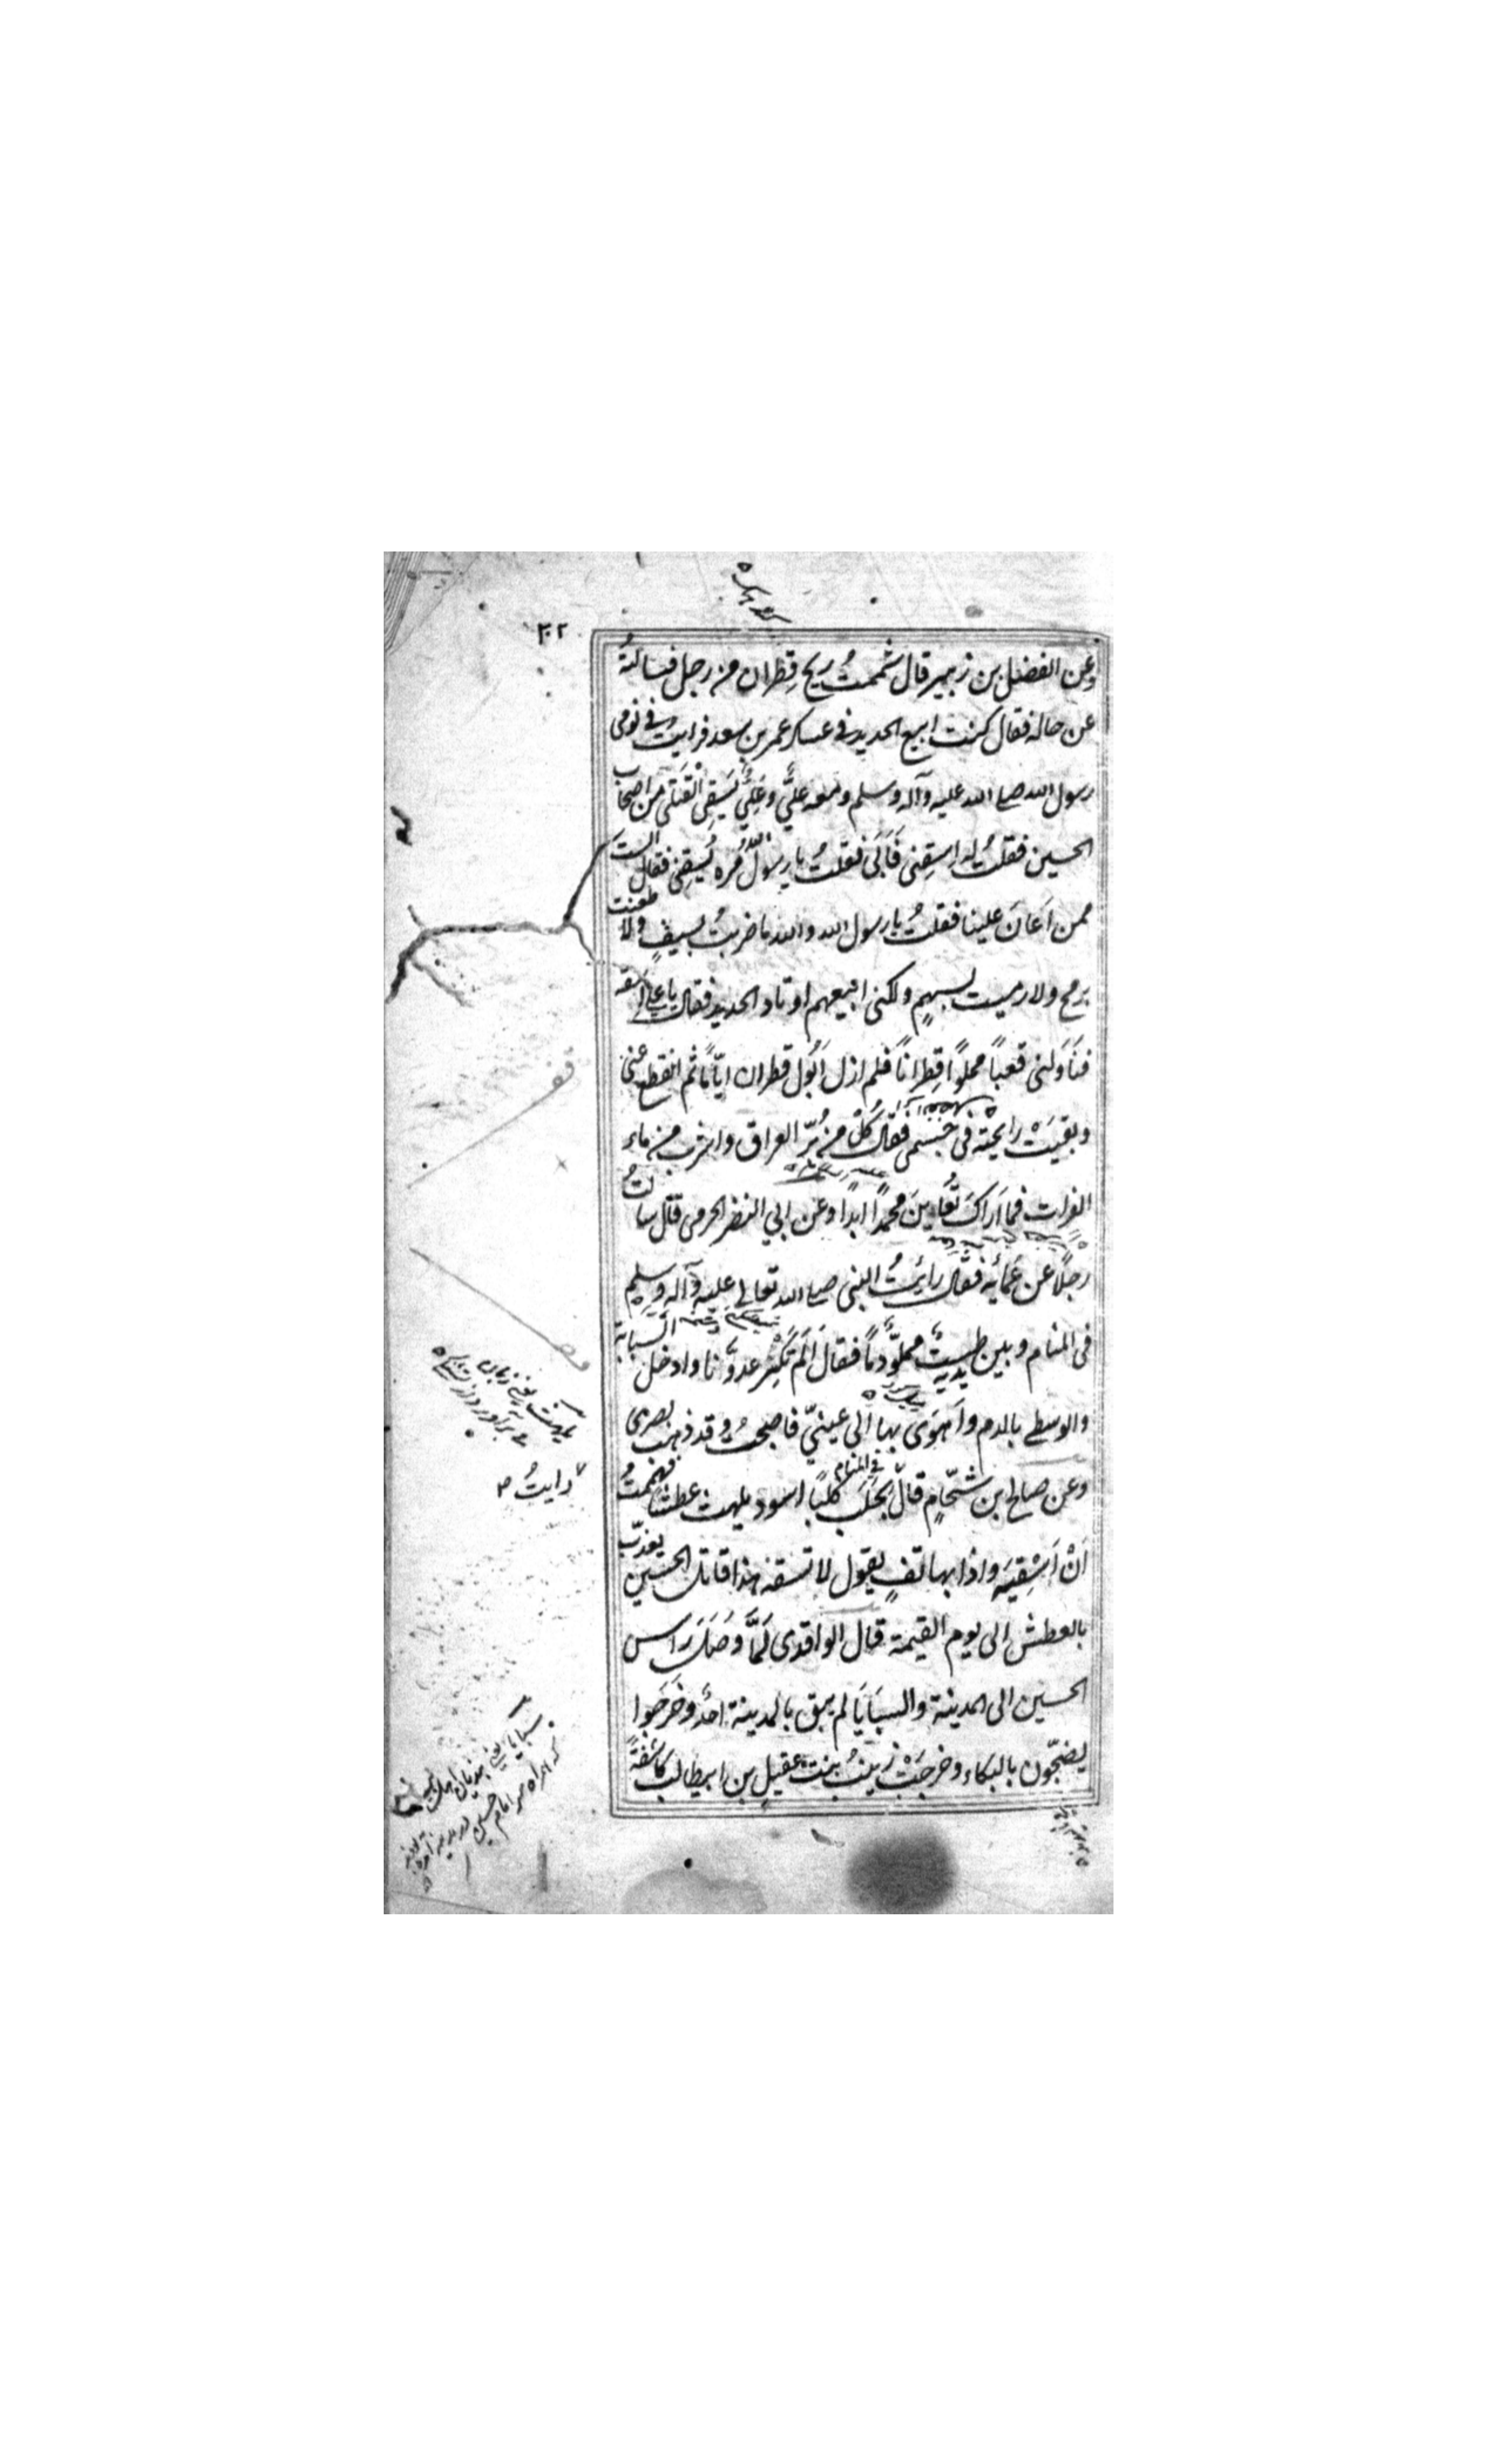 ٣٠٢
وعن الفضل بن زبير قال شممتُ ريح قِطران من رجل فسالتهُ
عن حاله فقال كنت ابيع الحديد في عسكر عمر بن سعد فرايتُ في نومى
رسول الله صلے الله عليه وآله وسلم ومعه عليٌّ وعليٌّ يَسقِى القَتلى من اصحاب
الحسين فقلتُ له اسقِنى فَاَبَى فقلتُ يا رسول اللهُ مُره يُسقِنى فقال الست
ممن اَعانَ علينا فقلتُ يا رسول الله والله ما ضربتُ بسيفٍ ولا طعنت
برمح ولا رميت بسهمٍ ولكنى ابيعهم اوتاد الحديد فقال يا على اسقه
فنَاوَلنى قعباً مملوًا قِطراناً فلم ازل اَبُول قطران ايّامًا ثم انقطع عنى
وبقيَتْ رايحتة في جسمى فقال كُل من بُرّ العراق واشرب من ماء
الفرات فما اَراكَ تُعاينَ محمدًا ابدًا وعن ابي النضر الجرمى قال سالتُ
رجلًا عن عَمائِه فقال رائيتُ النبى صلے الله تعالى عليه وآله وسلم
فى المنام وبين يديه طسِتٌ مملوٌّ دماً فقال اَلم تُكثِر عدوَّنا وادخل السبابة
والوسطے بالدم واَهوَى بها الى عينىّ فاصبحتُ وقد ذهب بصرى
وعن صالح ابن شحّامٍ قال بحَلَب في المنام كلبًا اسود يلهث عطشا فهممتُ
اَنْ اَسْقِيَه واذا بهاتفٍ يقول لا تسقه هذا قاتل الحسين يعذّب
بالعطش الى يوم القيمة قال الواقدى لَمَّا وصَل راس
الحسين الى المدينة والسبايا لم يبق بالمدينة احدٌ وخرَجوا
يضجّون بالبكاء وخرجَتْ زينبُ بنت عقيلٍ بن ابيطالب كاشفةً
يلهث يعنى زبان
رايتُ
سبايا يعنى